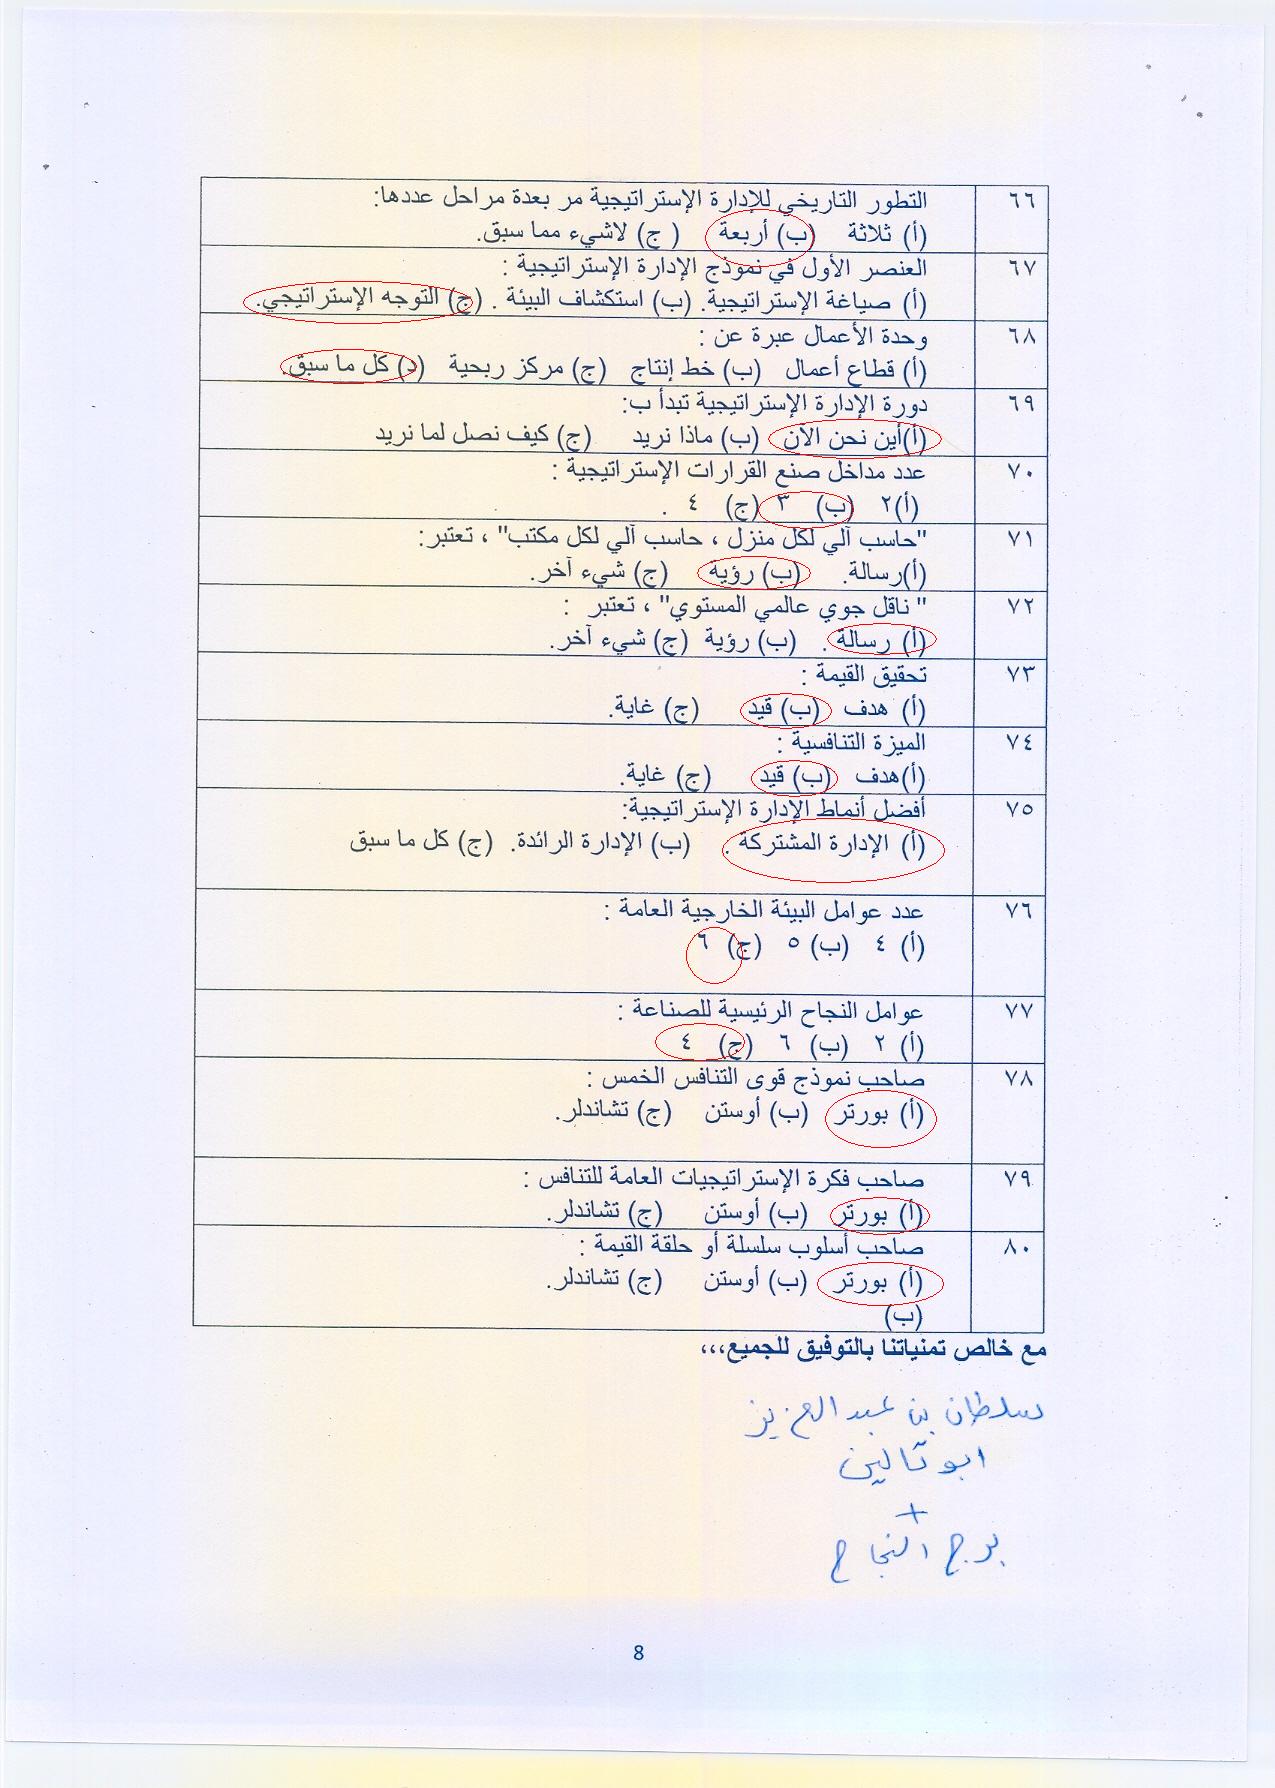 ٦٦ التطور التاريخي للإدارة الإستراتيجية مر بعدة مراحل عددها:
(أ) ثلاثة (ب) أربعة ( ج) لاشيء مما سبق.
٦٧ العنصر الأول في نموذج الإدارة الإستراتيجية :
(أ) صياغة الإستراتيجية. (ب) استكشاف البيئة . (ج) التوجه الإستراتيجي.
٦٨ وحدة الأعمال عبرة عن :
(أ) قطاع أعمال (ب) خط إنتاج (ج) مركز ربحية (د) كل ما سبق.
٦٩ دورة الإدارة الإستراتيجية تبدأ ب:
(أ)أين نحن الآن (ب) ماذا نريد (ج) كيف نصل لما نريد
٧٠ عدد مداخل صنع القرارات الإستراتيجية :
(أ)٢ (ب) ٣ (ج) ٤ .
٧١ "حاسب آلي لكل منزل ، حاسب آلي لكل مكتب" ، تعتبر:
(أ)رسالة. (ب) رؤية (ج) شيء آخر.
٧٢ " ناقل جوي عالمي المستوي" ، تعتبر :
(أ) رسالة . (ب) رؤية (ج) شيء آخر.
٧٣ تحقيق القيمة :
(أ) هدف (ب) قيد (ج) غاية.
٧٤ الميزة التنافسية :
(أ)هدف (ب) قيد (ج) غاية.
٧٥ أفضل أنماط الإدارة الإستراتيجية:
(أ) الإدارة المشتركة . (ب) الإدارة الرائدة. (ج) كل ما سبق
٧٦ عدد عوامل البيئة الخارجية العامة :
(أ) ٤ (ب) ٥ (ج) ٦
٧٧ عوامل النجاح الرئيسية للصناعة :
(أ) ٢ (ب) ٦ (ج) ٤
٧٨ صاحب نموذج قوى التنافس الخمس :
(أ) بورتر (ب) أوستن (ج) تشاندلر.
٧٩ صاحب فكرة الإستراتيجيات العامة للتنافس :
(أ) بورتر (ب) أوستن (ج) تشاندلر.
٨٠ صاحب أسلوب سلسلة أو حلقة القيمة :
(أ) بورتر (ب) أوستن (ج) تشاندلر.
(ب)
مع خالص تمنياتنا بالتوفيق للجميع،،،
سلطان بن عبدالعزيز
ابو تالين
+
برج النجاح
8